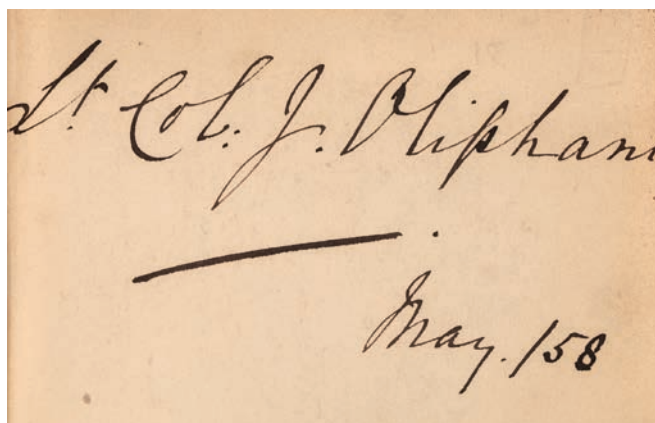 Lt. Col. J. Oliphan
May. /58